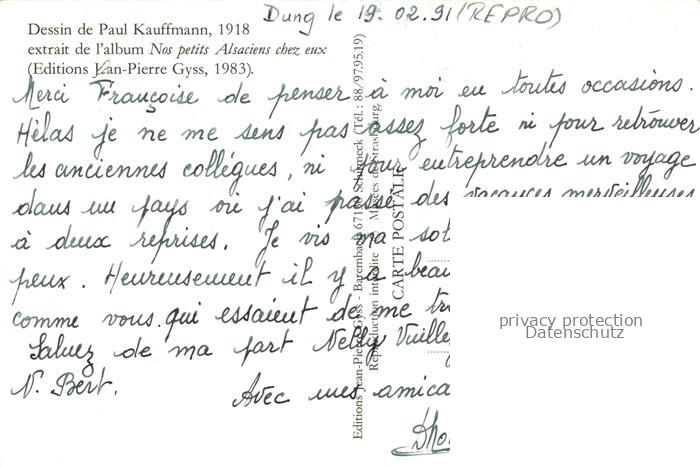 Dung le 19.02.91 (REPRO)
Dessin de Paul Kauffmann, 1918
extrait de l'album Nos petits Alsaciens chez eux
(Editions Jean-Pierre Gyss, 1983).
Merci Françoise de penser à moi en toutes occasions.
Hélas je ne me sens pas assez forte ni pour retrouver
les anciennes collègues, ni pour entreprendre un voyage
dans un pays où j'ai passé des vacances merveilleuses
à deux reprises. Je vis ma
peux. Heureusement il y a
comme vous qui essaient de me
Saluez de ma part Nelly
N. Bert.
Avec mes
Editions Jean-Pierre Gyss - Barembach 67130 Schirmeck (Tél.: 88/97.95.19)
Reproduction interdite Musées de Strasbourg
CARTE POSTALE
privacy protection
Datenschutz